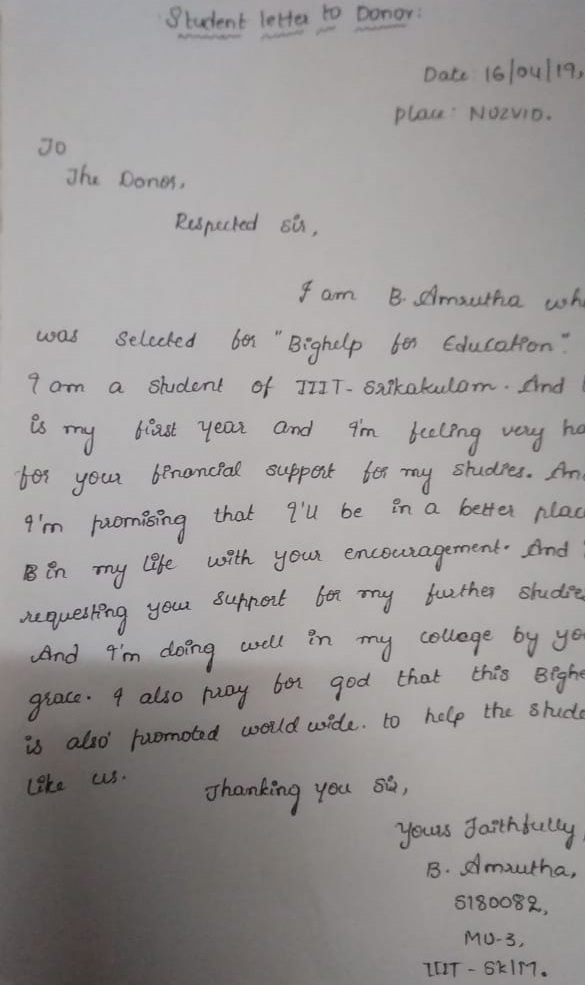 Student letter to Donor:
Date: 16/04/19,
place: NUZVID.
To
The Donor,
Respected sir,
I am B. Amrutha wh
was selected for "Bighelp for Education".
I am a student of IIIT- Srikakulam. And
is my first year and I'm feeling very ha
for your financial support for my studies. An
I'm promising that I'll be in a better plac
in my life with your encouragement. And
requesting your support for my further studie
And I'm doing well in my college by yo
grace. I also pray for god that this Bighe
is also promoted world wide. to help the stude
like us.
Thanking you sir,
Yours Faithfully,
B. Amrutha,
S180082,
MU-3,
IIIT - SKLM.